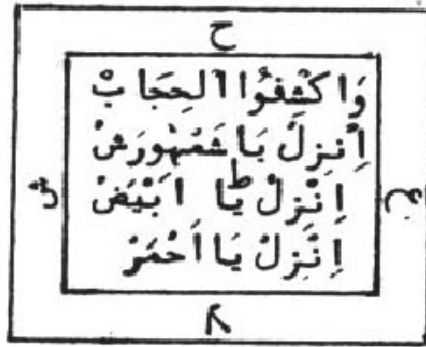 ح
وَاكْشِفُوا الحِجَابْ
اِنزِلْ يَا شَمْهُورَشْ
ش
اِنْزِلْ يَا ابْيَضْ
اِنْزِلْ يَا اَحْمَرْ